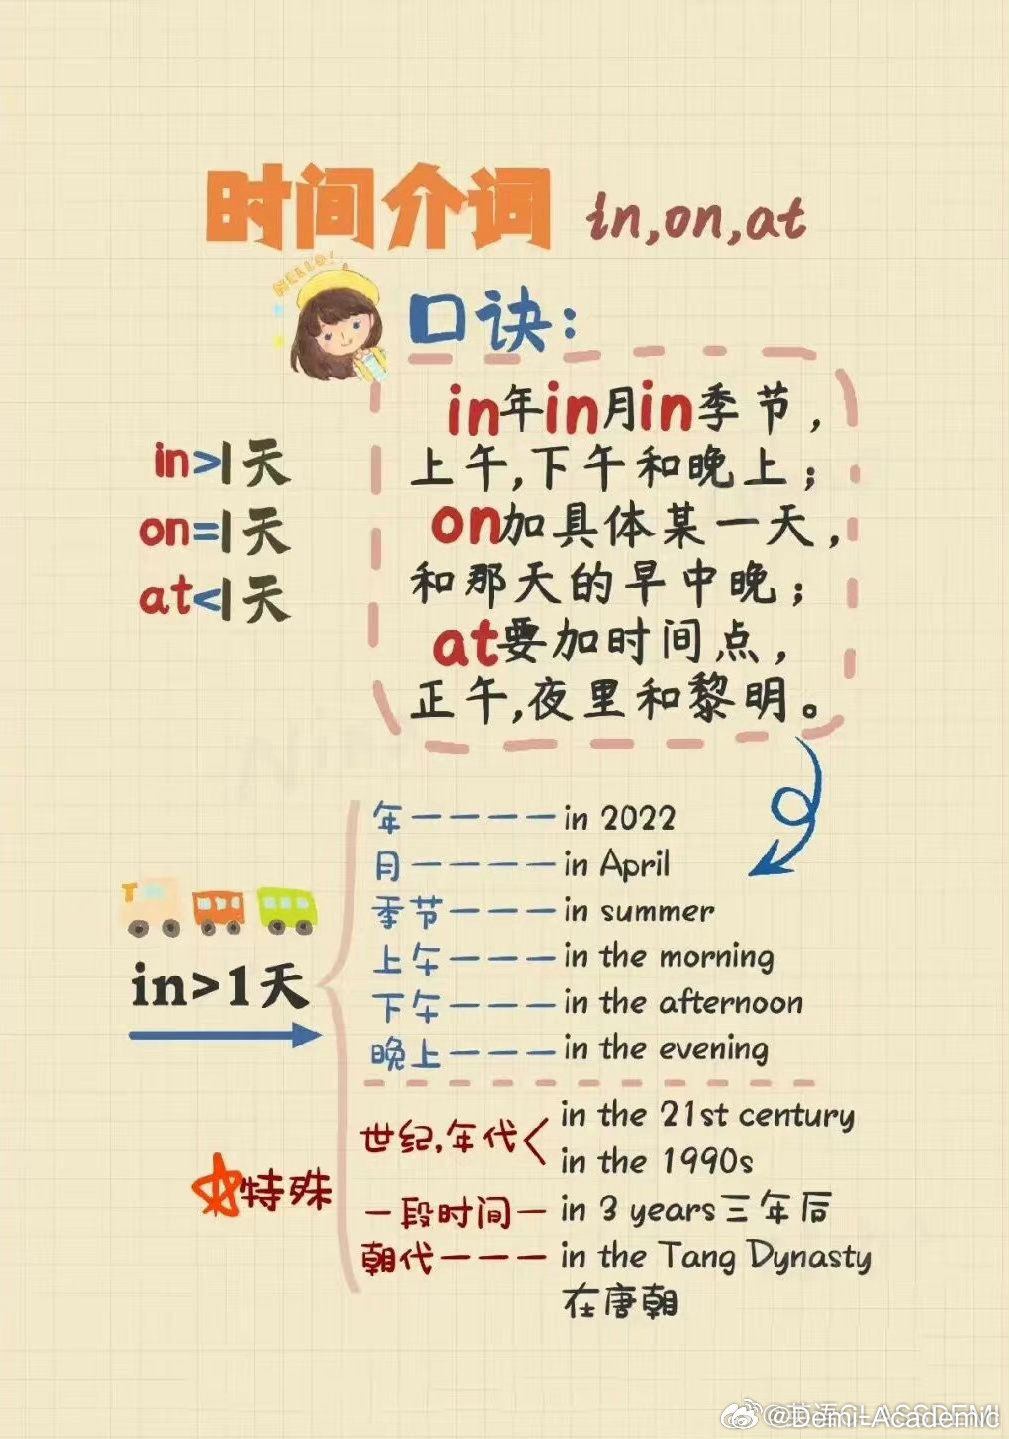 时间介词 in,on,at
HELLO!
口诀：
in年in月in季节，
上午,下午和晚上；
on加具体某一天，
和那天的早中晚；
at要加时间点，
正午,夜里和黎明。
in>1天
on=1天
at<1天
in>1天
年————in 2022
月————in April
季节———in summer
上午———in the morning
下午———in the afternoon
晚上———in the evening
特殊
世纪,年代<in the 21st century
in the 1990s
一段时间—in 3 years三年后
朝代———in the Tang Dynasty
在唐朝
@Demi-Academic